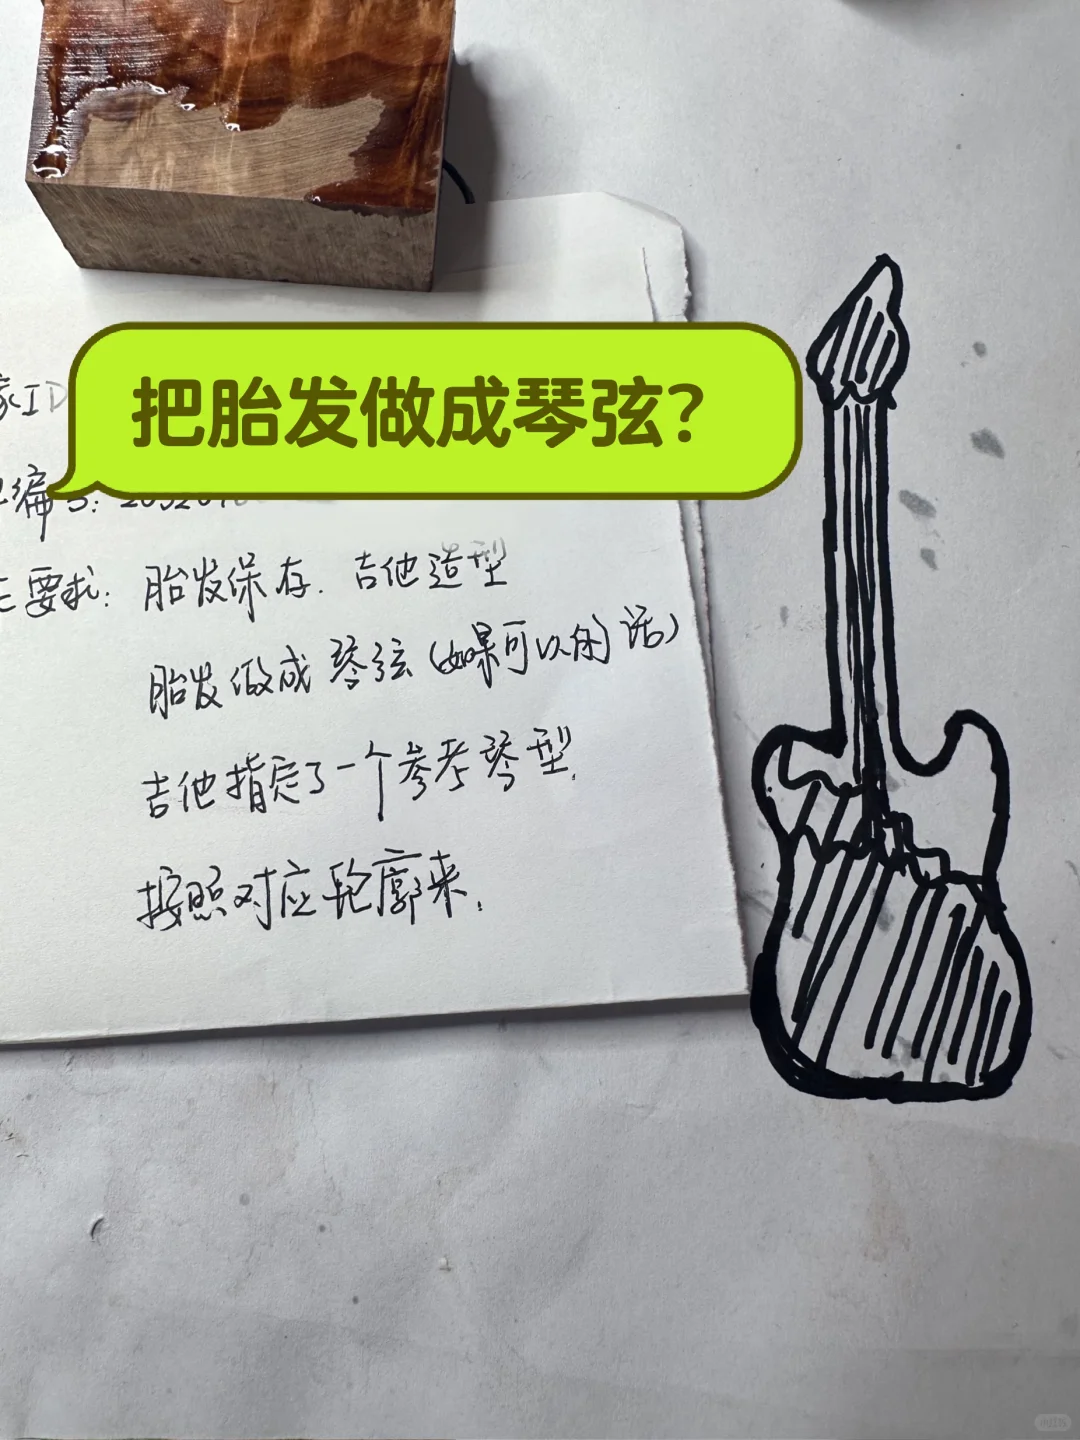 把胎发做成琴弦？
家ID
编号:
主要求: 胎发保存. 吉他造型
胎发做成琴弦(如果可以的话)
吉他指定了一个参考琴型.
按照对应轮廓来.
小红书